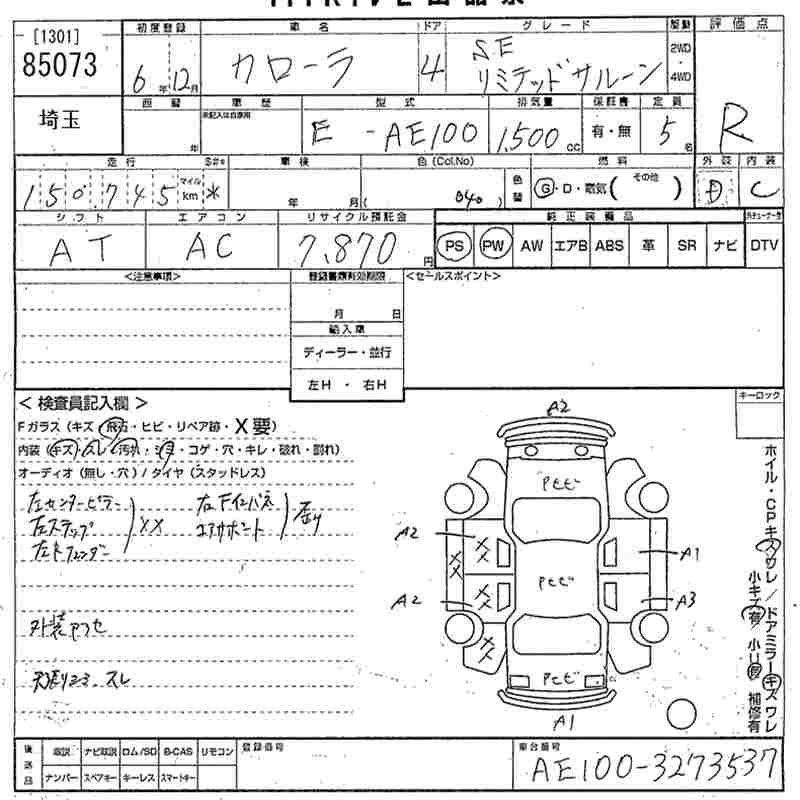 [1301]
85073
埼玉
初度登録 車名 ドア グレード 駆動 評価点
6年12月 カローラ 4 SE リミテッドサルーン 2WD・4WD R
車歴 型式 排気量 保証書 定員
未記入は自家用
年 E-AE100 1,500cc 有・無 5名
走行 車検 色(Col.No) 色替 燃料 外装 内装
150745 マイル km * 年 月( 040 ) G・D・電気( その他 ) D C
シフト エアコン リサイクル預託金 純正装備品
AT AC 7,870円 PS PW AW エアB ABS 革 SR ナビ DTV
<注意事項> 登録書類有効期限 <セールスポイント>
月 日
輸入車
ディーラー・並行
左H・右H
<検査員記入欄> キーロック
Fガラス(キズ・飛石・ヒビ・リペア跡・X要)
内装(キズ・スレ・汚れ・シミ・コゲ・穴・キレ・破れ・割れ)
オーディオ(無し・穴)/タイヤ(スタッドレス)
左センターピラー
左ステップ
XX
右Fインパネ
エアサポート
外装アセ
天張りシミ、スレ
A2
Pとビ
A2 XX XX A1
Pとビ
A2 XX A3
XX
Pとビ
A1
ホイル・CPキズワレ/ドアミラーキズワレ
小キズ有 小U有 補修有
後送品 取説 ナビ取説 ロム/SD B-CAS リモコン 登録番号 車台番号
ナンバー スペアキー キーレス スマートキー
AE100-3273537